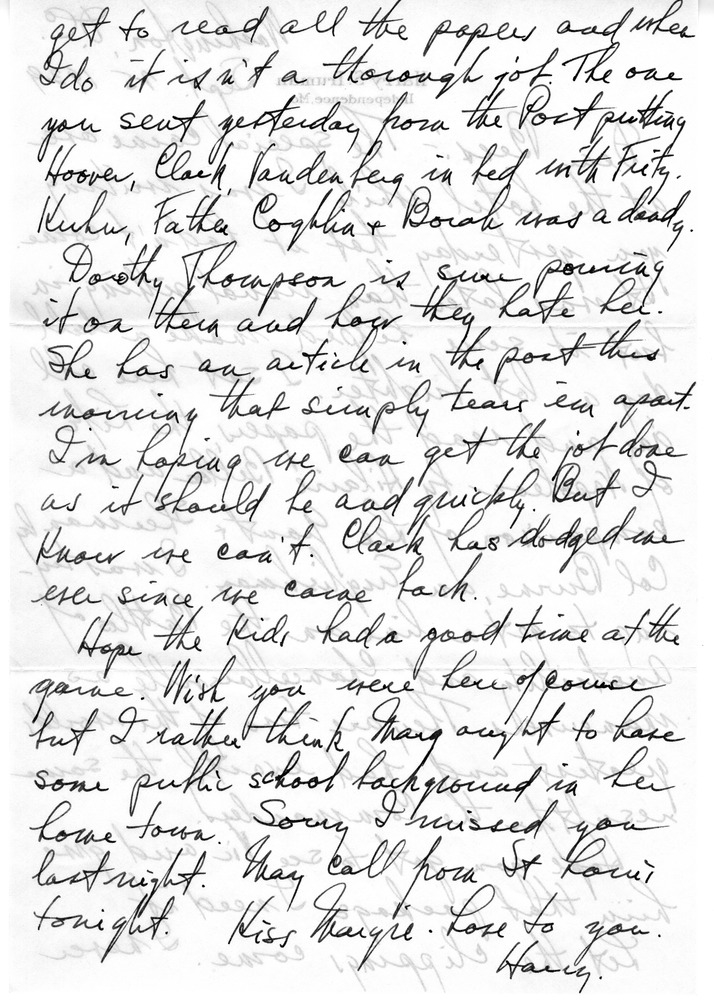 get to read all the papers and when
I do it isn't a thorough job. The one
you sent yesterday from the Post putting
Hoover, Clark, Vandenberg in bed with Fritz.
Kuhn, Father Coghlin & Borah was a dandy.
Dorothy Thompson is sure pouring
it on them and how they hate her.
She has an article in the post this
morning that simply tears 'em apart.
I'm hoping we can get the job done
as it should be and quickly. But I
know we can't. Clark has dodged me
ever since we came back.
Hope the kids had a good time at the
game. Wish you were here of course
but I rather think Marg ought to have
some public school background in her
home town. Sorry I missed you
last night. May call from St Louis
tonight. Kiss Margie. Love to you.
Harry.